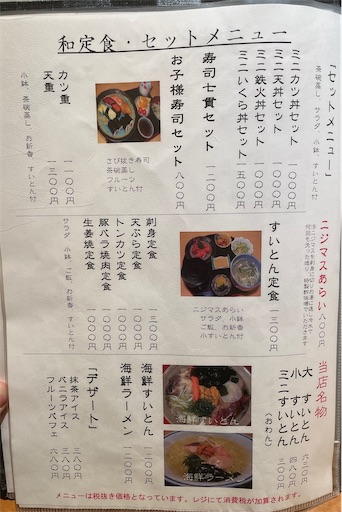 和定食・セットメニュー
「セットメニュー」
茶碗蒸し サラダ 小鉢 すいとん付
ミニカツ丼セット 一〇〇〇円
ミニ天丼セット 一〇〇〇円
ミニ鉄火丼セット
ミニいくら丼セット 一五〇〇円
寿司七貫セット 一二〇〇円
お子様寿司セット 八〇〇円
さび抜き寿司
茶碗蒸し
フルーツ
すいとん付
カツ重 一一〇〇円
天重 一三〇〇円
小鉢 茶碗蒸し お新香 すいとん付
ニジマスあらい 八〇〇円
すいとん定食 一三〇〇円
ニジマスあらい
サラダ 小鉢
ご飯、お新香
小すいとん付
刺身定食
天ぷら定食
トンカツ定食 一〇〇〇円
豚バラ焼肉定食 一〇〇〇円
生姜焼定食 一〇〇〇円
サラダ 小鉢 ご飯 お新香 すいとん付
当店名物
大 すいとん 六二〇円
小 すいとん 四八〇円
ミニすいとん 三〇〇円
(おわん)
海鮮すいとん
海鮮ラーメン
海鮮すいとん 一二〇〇円
海鮮ラーメン 一二〇〇円
「デザート」
抹茶アイス 三八〇円
バニラアイス 三八〇円
フルーツパフェ 六八〇円
メニューは税抜き価格となっています。レジにて消費税が加算されます。